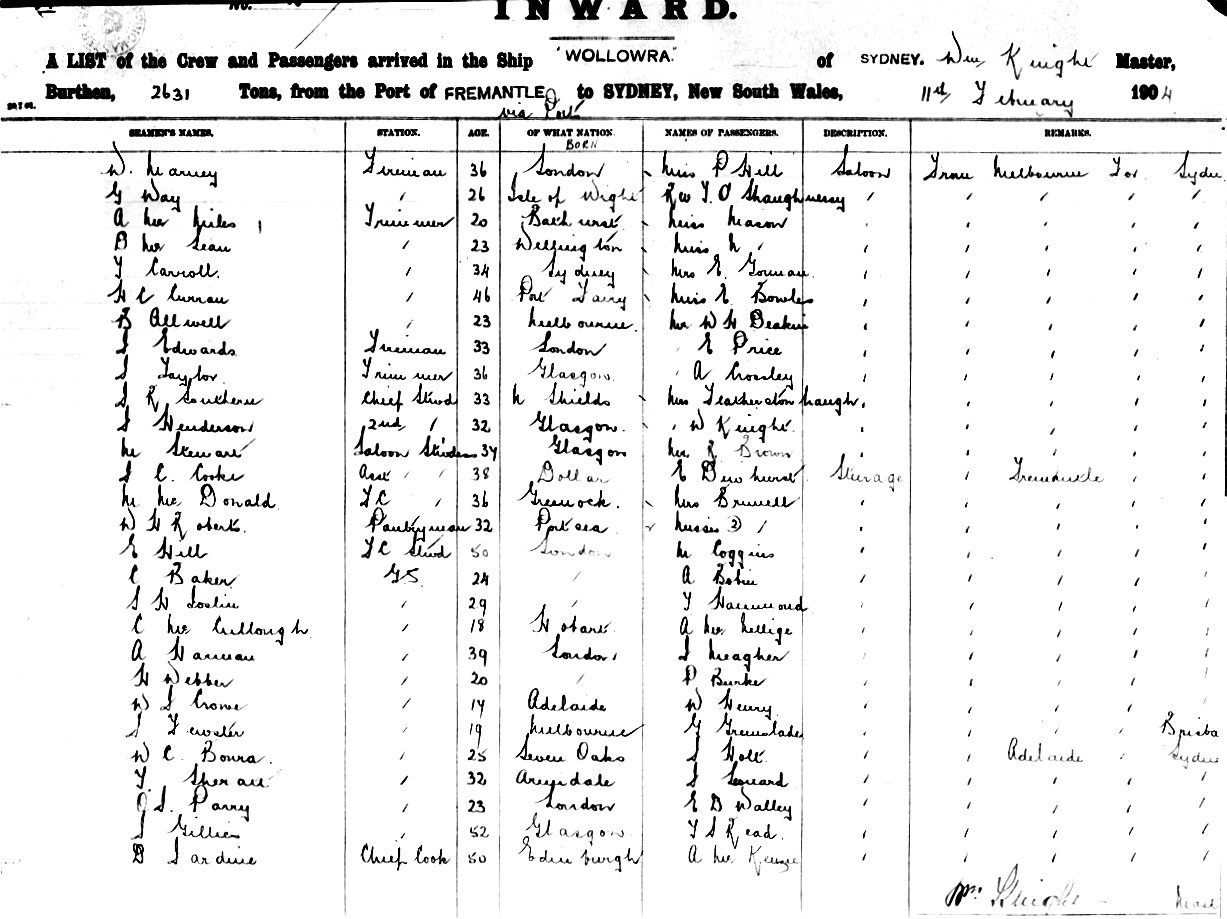 No.
INWARD.
A LIST of the Crew and Passengers arrived in the Ship "WOLLOWRA" of SYDNEY. Wm Knight Master,
Burthen, 2631 Tons, from the Port of FREMANTLE to SYDNEY, New South Wales, 11th February 1904
via Port
SEAMEN'S NAMES. STATION. AGE. OF WHAT NATION. BORN NAMES OF PASSENGERS. DESCRIPTION. REMARKS.
W. Fireman 36 London Miss P Hill Saloon From Melbourne For
G Way " 26 Isle of Wight Rev T. O Shaughnessy "
A Mc Miles Trimmer 20 Bathurst Miss Mason " " " " "
D Mc Lean " 23 Wellington Miss M " " " " " "
T Carroll. " 34 Sydney Mrs E. Gorman. " " " " "
H C Curran " 46 Port Fairy Miss E Bowles " " " " "
B Allwell " 23 Melbourne. Mr W H Deakin " " " " "
J Edwards Fireman 33 London " E Price " " " " "
J Taylor Trimmer 36 Glasgow. " A Crossley " " " " "
J R Southern Chief Stwd 33 N Shields Mrs Featherstonhaugh. " " " "
J Henderson 2nd " 32 Glasgow. " W Knight. " " " " "
M Stewart Saloon Glasgow Mr R Brown " " " " "
J C. Cooke Asst " " 38 Dollar E Dewhurst Steerage " Fremantle " "
M Mc Donald FC " 36 Greenock. Mrs Brunell " " " " "
W H Roberts. Pantryman 32 Portsea Misses 2 " " " " " "
E Hill FC Stwd 50 London M Coggins " " " " "
C Baker GS. 24 " A " " " " "
J H Joslin " 29 " T Hammond " " " " "
C Mc Cullough " 18 Hobart. A Mc Nellige " " " " "
A Harman " 39 London J Meagher " " " " "
H Webber " 20 " P Burke " " " " "
W J Crowe " 17 Adelaide W Henry " " " " "
J Fewster " 19 Melbourne G Greenslade " " " " Brisba
W C. " 25 Seven Oaks J Holt " " Adelaide " Sydne
T. " 32 Arundale J Leonard " " " " "
O J. Parry " 23 London E D Walley " " " " "
J Gillies " 52 Glasgow. T S Read. " " " " "
D Jardine Chief Cook 50 Edinburgh A Mc Kenzie " " " " "
Wm Knight